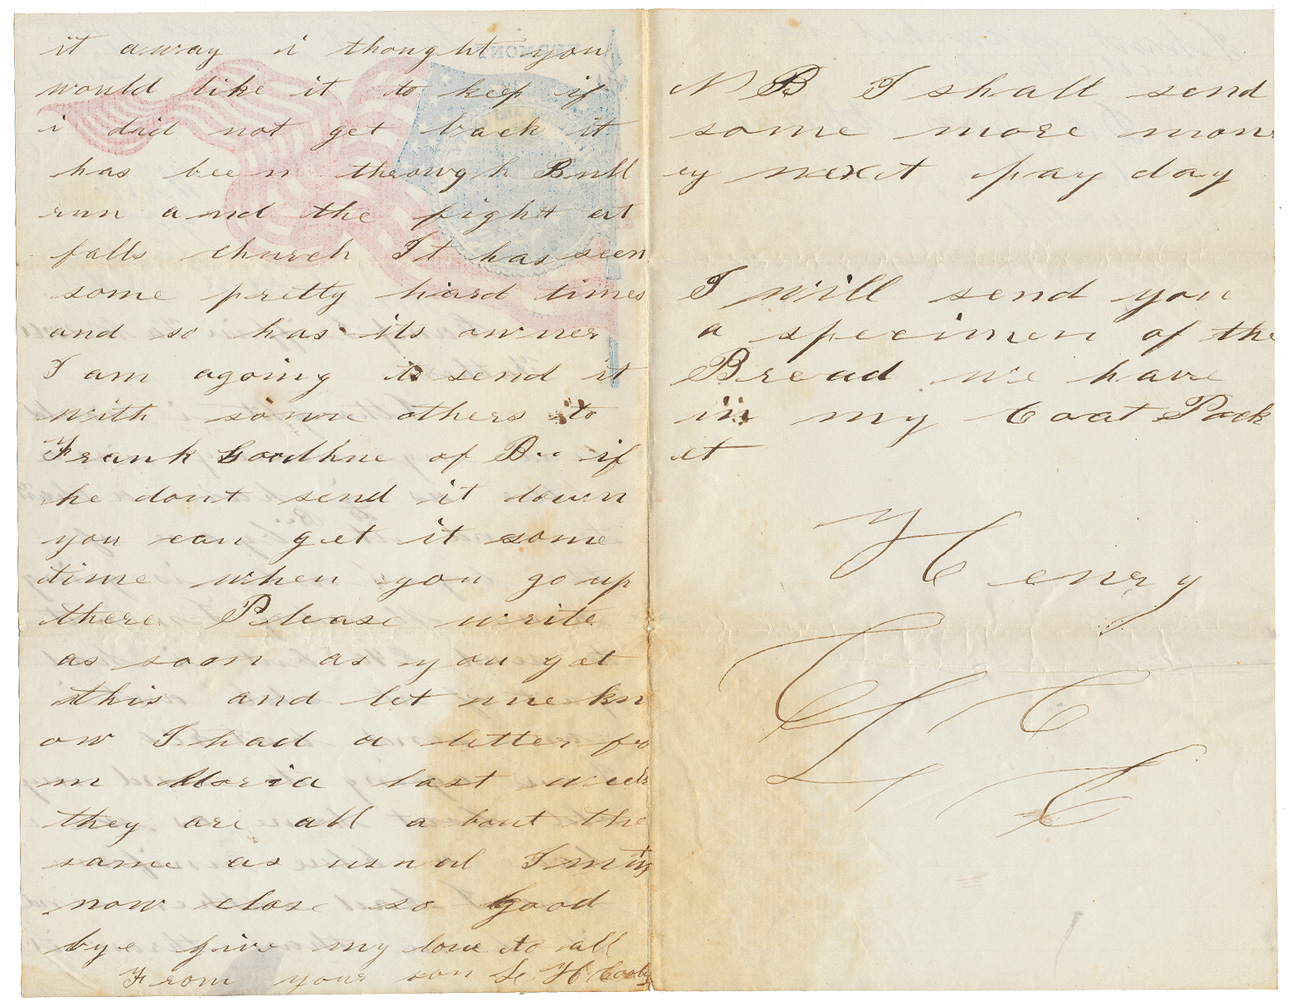 it away i thought you
would like it to keep if
i did not get back it
has been through Bull
run and the fight at
falls church It has seen
some pretty hard times
and so has its owner
I am agoing to send it
with some others to
Frank Goodhue of B.. if
he dont send it down
you can get it some
time when you go up
there Please write
as soon as you get
this and let me kn
ow I had a letter fro
m Maria last week
they are all about the
same as usual I must
now close so good
bye give my love to all
From your son H
N B I shall send
some more mon
ey next pay day
I will send you
a specimen of the
Bread we have
in my Coat Pock
et
Henry